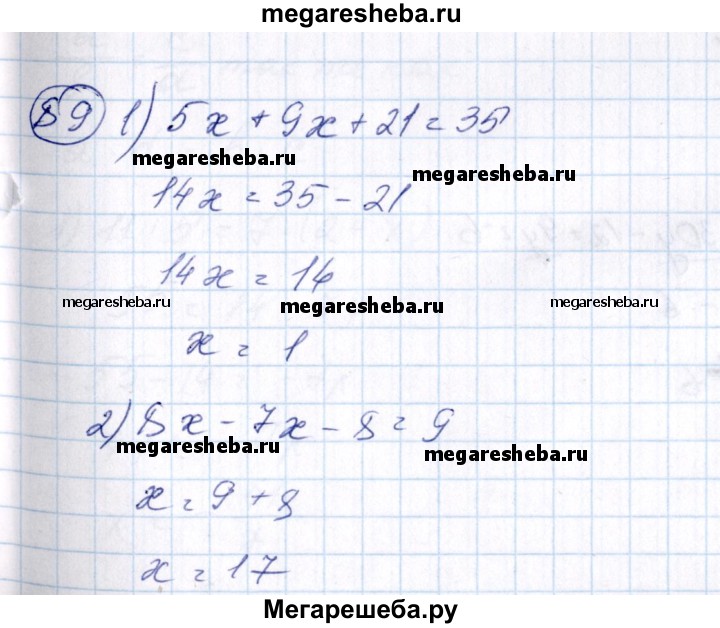 megaresheba.ru
89 1) 5x + 9x + 21 = 35
megaresheba.ru
megaresheba.ru
14x = 35 - 21
14x = 14
megaresheba.ru megaresheba.ru megaresheba.ru
x = 1
2) 8x - 7x - 8 = 9
megaresheba.ru
megaresheba.ru
x = 9 + 8
x = 17
Мегарешеба.ру